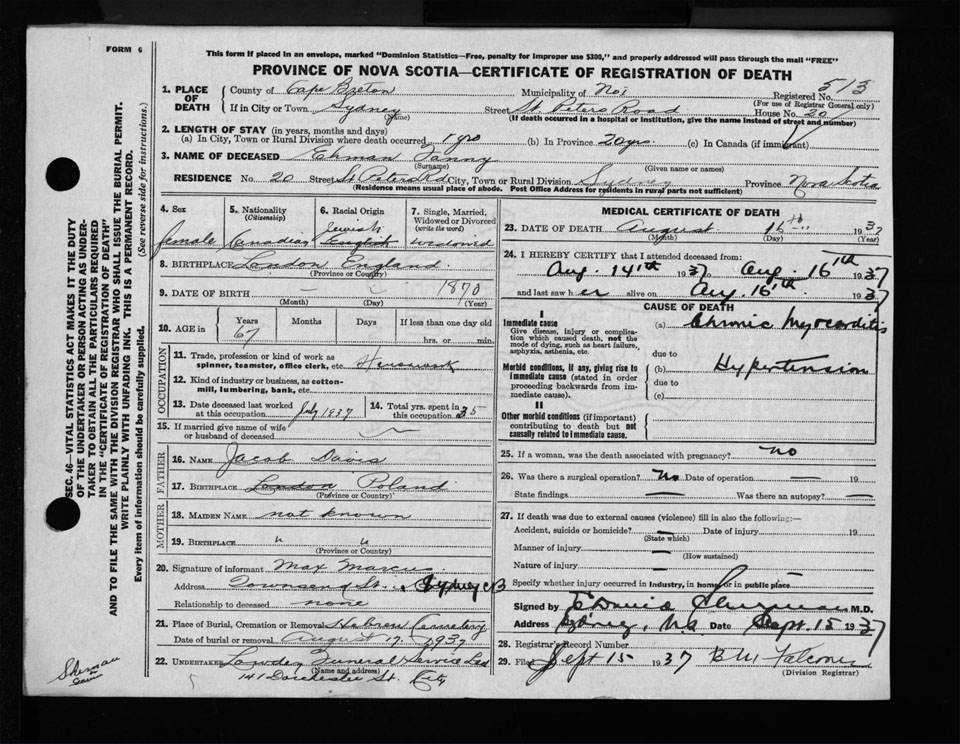 FORM 6
This form if placed in an envelope, marked "Dominion Statistics—Free, penalty for improper use $300," and properly addressed will pass through the mail "FREE"
PROVINCE OF NOVA SCOTIA—CERTIFICATE OF REGISTRATION OF DEATH
SEC. 46—VITAL STATISTICS ACT MAKES IT THE DUTY
OF THE UNDERTAKER OR PERSON ACTING AS UNDER-
TAKER TO OBTAIN ALL THE PARTICULARS REQUIRED
IN THE "CERTIFICATE OF REGISTRATION OF DEATH"
AND TO FILE THE SAME WITH THE DIVISION REGISTRAR WHO SHALL ISSUE THE BURIAL PERMIT.
WRITE PLAINLY WITH UNFADING INK. THIS IS A PERMANENT RECORD.
Every item of information should be carefully supplied. (See reverse side for instructions.)
1. PLACE OF DEATH County of Cape Breton Municipality of No1 Registered No. 513
(For use of Registrar General only)
If in City or Town Sydney Street St. Peters Road House No. 20
(Name) (If death occurred in a hospital or institution, give the name instead of street and number)
2. LENGTH OF STAY (in years, months and days)
(a) In City, Town or Rural Division where death occurred yrs (b) In Province 20 yrs (c) In Canada (if immigrant)
3. NAME OF DECEASED Ehman Fanny
(Surname) (Given name or names)
RESIDENCE No. 20 Street St Peters Rd City, Town or Rural Division Sydney Province Nova Scotia
(Residence means usual place of abode. Post Office Address for residents in rural parts not sufficient)
4. Sex 5. Nationality (Citizenship) 6. Racial Origin 7. Single, Married, Widowed or Divorced (write the word)
female Canadian Jewish English widowed
8. BIRTHPLACE London England
(Province or Country)
9. DATE OF BIRTH — — 1870
(Month) (Day) (Year)
10. AGE in Years Months Days If less than one day old
67 hrs. or min.
OCCUPATION
11. Trade, profession or kind of work as spinner, teamster, office clerk, etc. Housework
12. Kind of industry or business, as cotton-mill, lumbering, bank, etc.
13. Date deceased last worked at this occupation July 1937 14. Total yrs. spent in this occupation 35
15. If married give name of wife or husband of deceased
FATHER
16. NAME Jacob Davis
17. BIRTHPLACE London Poland
(Province or Country)
MOTHER
18. MAIDEN NAME not known
19. BIRTHPLACE " "
(Province or Country)
20. Signature of informant Max Marcus
Address Townsend St. Sydney CB
Relationship to deceased none
21. Place of Burial, Cremation or Removal Hebrew Cemetery
Date of burial or removal August 17. 1937
22. UNDERTAKER Lowden Funeral Service Ltd
(Name and address)
141 Dorchester St. City
MEDICAL CERTIFICATE OF DEATH
23. DATE OF DEATH August 16th 1937
(Month) (Day) (Year)
24. I HEREBY CERTIFY that I attended deceased from:
Aug. 14th 1937 to Aug. 16th 1937
and last saw her alive on Aug. 16th. 1937
CAUSE OF DEATH
I
Immediate cause (a) Chronic Myocarditis
Give disease, injury or complication which caused death, not the mode of dying, such as heart failure, asphyxia, asthenia, etc.
due to
Morbid conditions, if any, giving rise to immediate cause (stated in order proceeding backwards from immediate cause).
(b) Hypertension
due to
(c)
II
Other morbid conditions (if important) contributing to death but not causally related to immediate cause.
25. If a woman, was the death associated with pregnancy? no
26. Was there a surgical operation? No Date of operation — 19
State findings — Was there an autopsy? —
27. If death was due to external causes (violence) fill in also the following:—
Accident, suicide or homicide? — Date of injury 19
(State which)
Manner of injury —
(How sustained)
Nature of injury —
Specify whether injury occurred in industry, in home, or in public place
Signed by M.D.
Address Sydney, N.S. Date Sept. 15 1937
28. Registrar's Record Number
29. Filed Sept 15 1937 B M Falconer
(Division Registrar)
Sherman